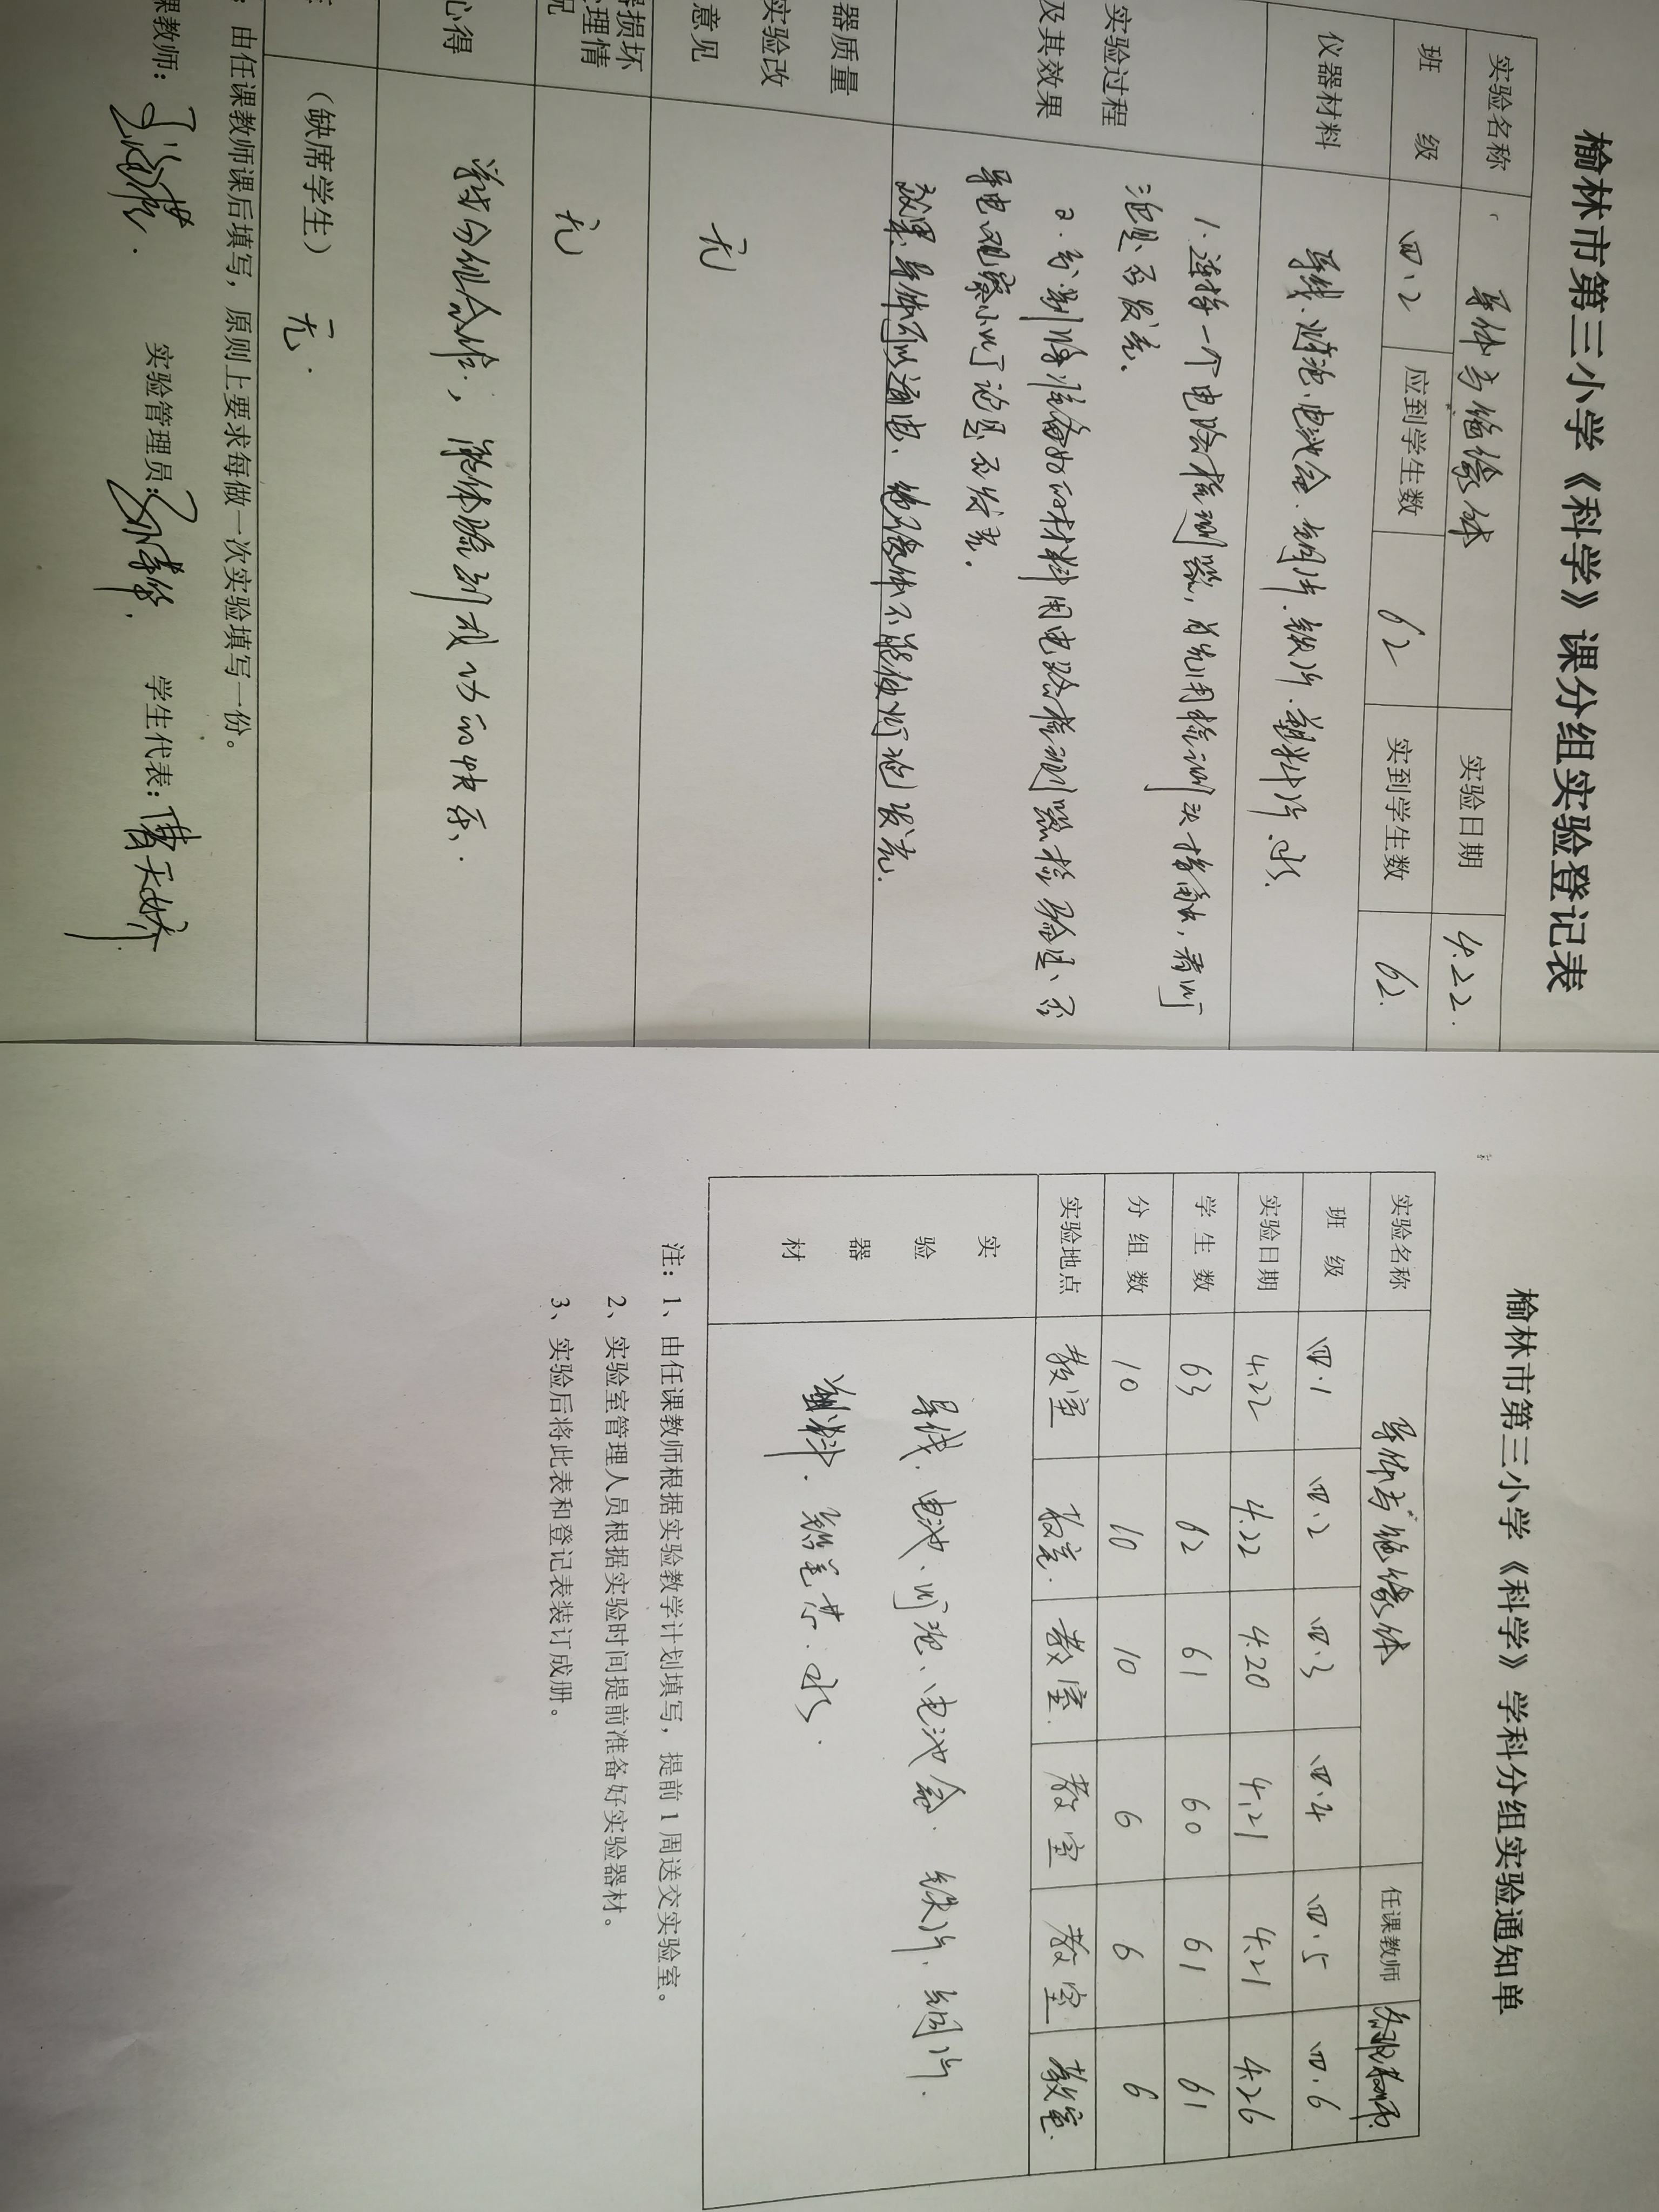 榆林市第三小学《科学》课分组实验登记表
实验名称 导体与绝缘体 实验日期 4.22.
班 级 四.2 应到学生数 62 实到学生数 62.
仪器材料 导线.灯泡.电池盒.铜片.铁片.塑料片.水.
实验过程
及其效果
1.连接一个电路检测器,首先用检测头接触,看灯
泡是否发亮.
2.分别将准备好的材料用电路检测器检验是否
导电,观察小灯泡是否发亮.
效果:导体可以通电、绝缘体不能使灯泡发亮.
器质量
实验改
意见
无
损坏
理情
况
无
心得
学会分组合作,能体验到成功的快乐.
(缺席学生) 无.
:由任课教师课后填写,原则上要求每做一次实验填写一份。
课教师: 实验管理员: 学生代表:曹天娇
榆林市第三小学《科学》学科分组实验通知单
实验名称 导体与绝缘体 任课教师
班 级 四.1 四.2 四.3 四.4 四.5 四.6
实验日期 4.22 4.22 4.20 4.21 4.21 4.26
学 生 数 63 62 61 60 61 61
分 组 数 10 10 10 6 6 6
实验地点 教室 教室. 教室. 教室 教室 教室.
实
验
器
材
导线.电池、灯泡、电池盒.铁片.铜片.
塑料.铅笔芯.水.
注:1、由任课教师根据实验教学计划填写,提前1周送交实验室。
2、实验室管理人员根据实验时间提前准备好实验器材。
3、实验后将此表和登记表装订成册。